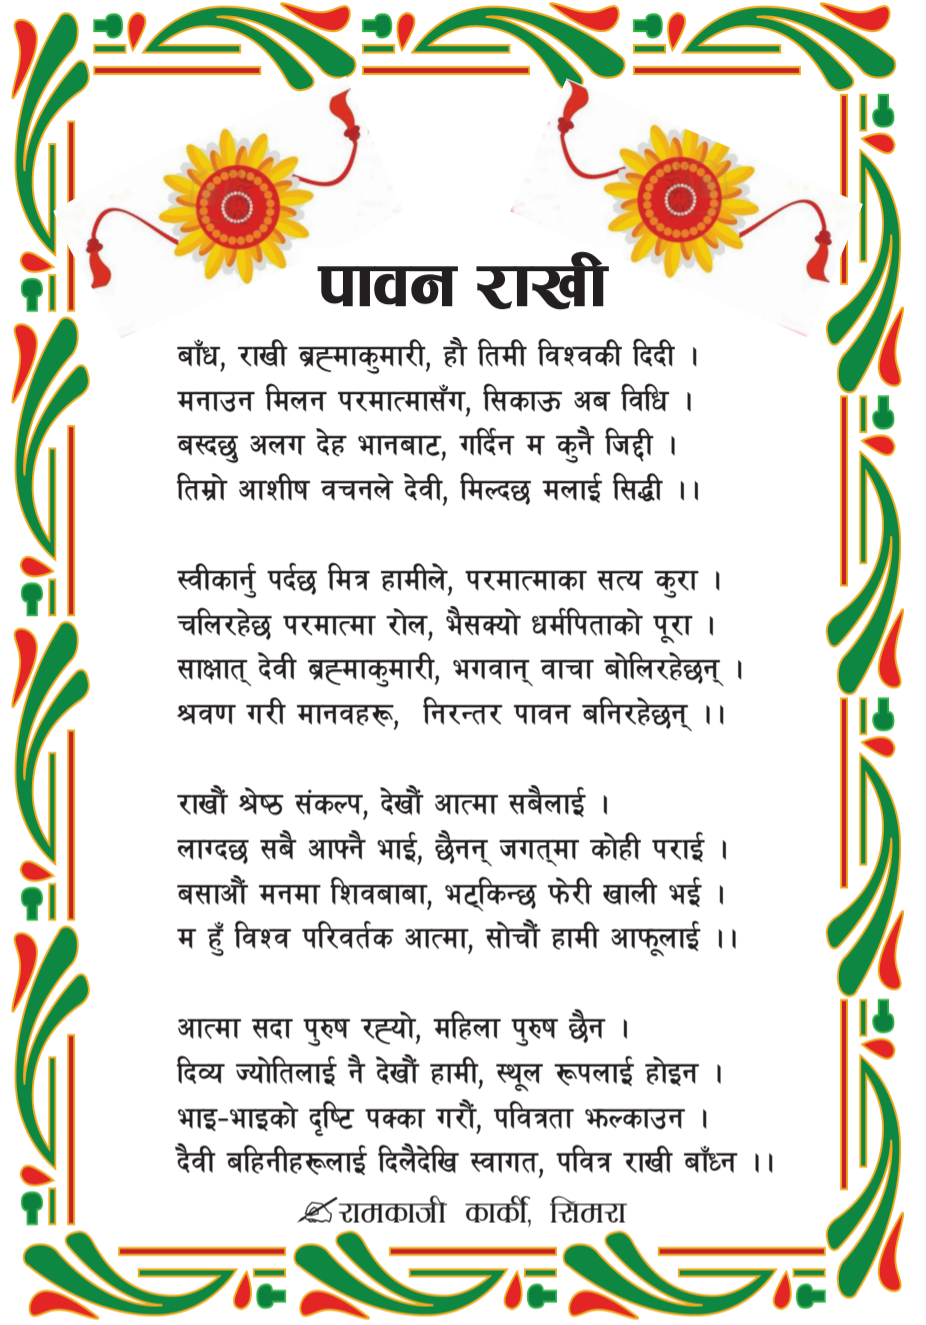 पावन राखी
बाँध, राखी ब्रह्माकुमारी, हौ तिमी विश्वकी दिदी ।
मनाउन मिलन परमात्मासँग, सिकाऊ अब विधि ।
बस्दछु अलग देह भानबाट, गर्दिन म कुनै जिद्दी ।
तिम्रो आशीष वचनले देवी, मिल्दछ मलाई सिद्धी ।।
स्वीकार्नु पर्दछ मित्र हामीले, परमात्माका सत्य कुरा ।
चलिरहेछ परमात्मा रोल, भैसक्यो धर्मपिताको पूरा ।
साक्षात् देवी ब्रह्माकुमारी, भगवान् वाचा बोलिरहेछन् ।
श्रवण गरी मानवहरू, निरन्तर पावन बनिरहेछन् ।।
राखौं श्रेष्ठ संकल्प, देखौं आत्मा सबैलाई ।
लाग्दछ सबै आफ्नै भाई, छैनन् जगत्‌मा कोही पराई ।
बसाऔं मनमा शिवबाबा, भट्‌किन्छ फेरी खाली भई ।
म हुँ विश्व परिवर्तक आत्मा, सोचौं हामी आफूलाई ।।
आत्मा सदा पुरुष रह्यो, महिला पुरुष छैन ।
दिव्य ज्योतिलाई नै देखौं हामी, स्थूल रूपलाई होइन ।
भाइ-भाइको दृष्टि पक्का गरौं, पवित्रता झल्काउन ।
दैवी बहिनीहरूलाई दिलैदेखि स्वागत, पवित्र राखी बाँध्न ।।
✍रामकाजी कार्की, सिमरा